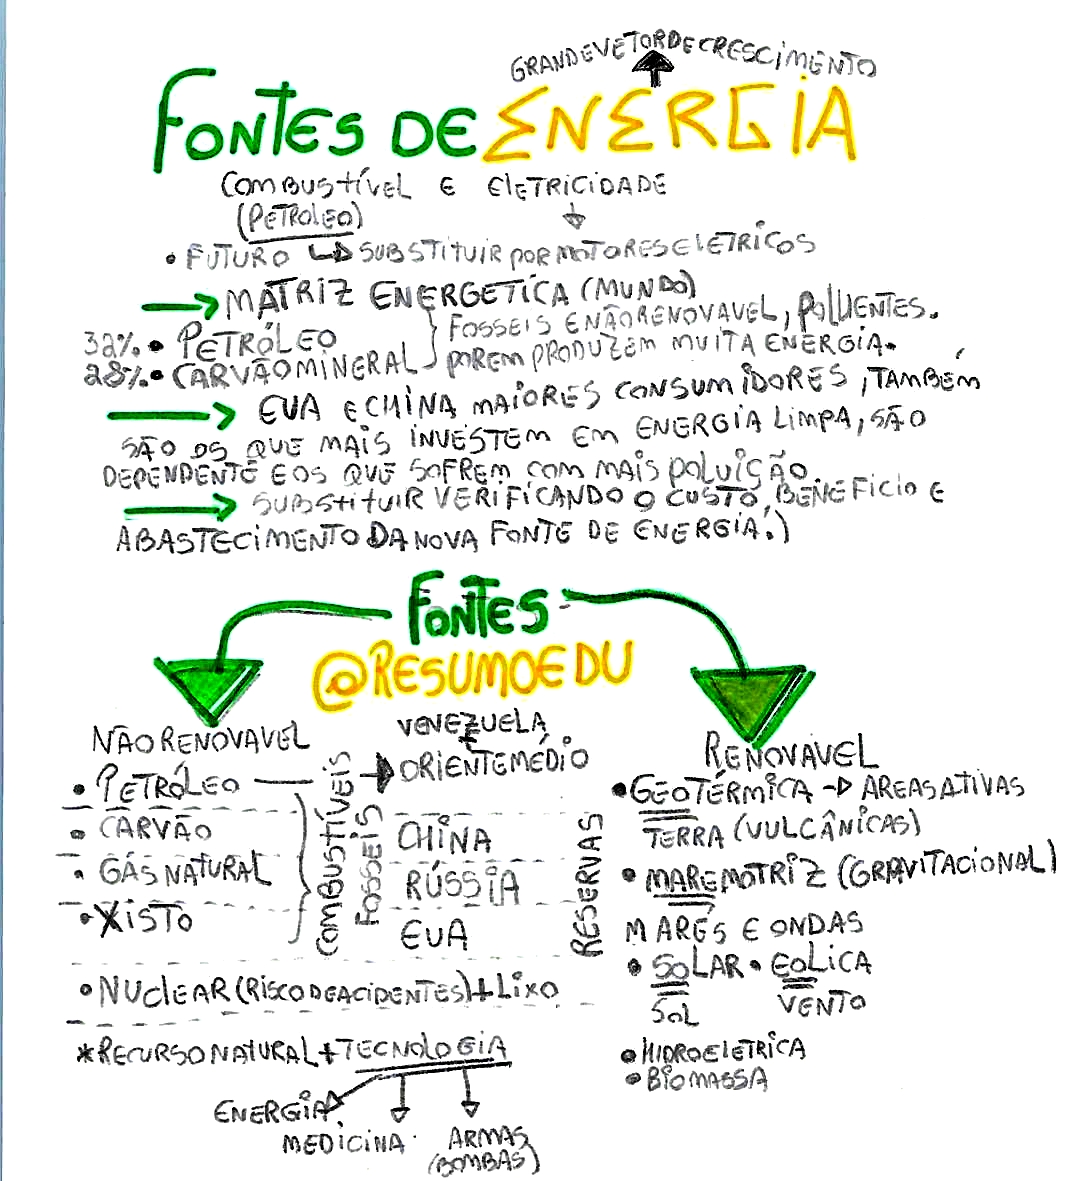 GRANDE VETOR DE CRESCIMENTO
FONTES DE ENERGIA
COMBUSTÍVEL E ELETRICIDADE
(PETROLEO)
• FUTURO ↳ SUBSTITUIR POR MOTORES ELETRICOS
→ MATRIZ ENERGETICA (MUNDO)
32% • PETRÓLEO
28% • CARVÃO MINERAL
FOSSEIS E NÃO RENOVAVEL, POLUENTES.
POREM PRODUZEM MUITA ENERGIA.
→ EUA E CHINA MAIORES CONSUMIDORES, TAMBÉM
SÃO OS QUE MAIS INVESTEM EM ENERGIA LIMPA, SÃO
DEPENDENTE E OS QUE SOFREM COM MAIS POLUIÇÃO.
→ SUBSTITUIR VERIFICANDO O CUSTO, BENEFICIO E
ABASTECIMENTO DA NOVA FONTE DE ENERGIA.)
FONTES
@RESUMOEDU
NÃO RENOVAVEL
• PETRÓLEO
• CARVÃO
• GÁS NATURAL
• XISTO
COMBUSTÍVEIS
FOSSEIS
VENEZUELA,
ORIENTE MÉDIO
CHINA
RÚSSIA
EUA
RESERVAS
• NUCLEAR (RISCO DE ACIDENTES) + LIXO
* RECURSO NATURAL + TECNOLOGIA
ENERGIA
MEDICINA
ARMAS
(BOMBAS)
RENOVAVEL
• GEOTÉRMICA → AREAS ATIVAS
TERRA (VULCÂNICAS)
• MAREMOTRIZ (GRAVITACIONAL)
MARÉS E ONDAS
• SOLAR • EOLICA
SOL VENTO
• HIDROELETRICA
• BIOMASSA